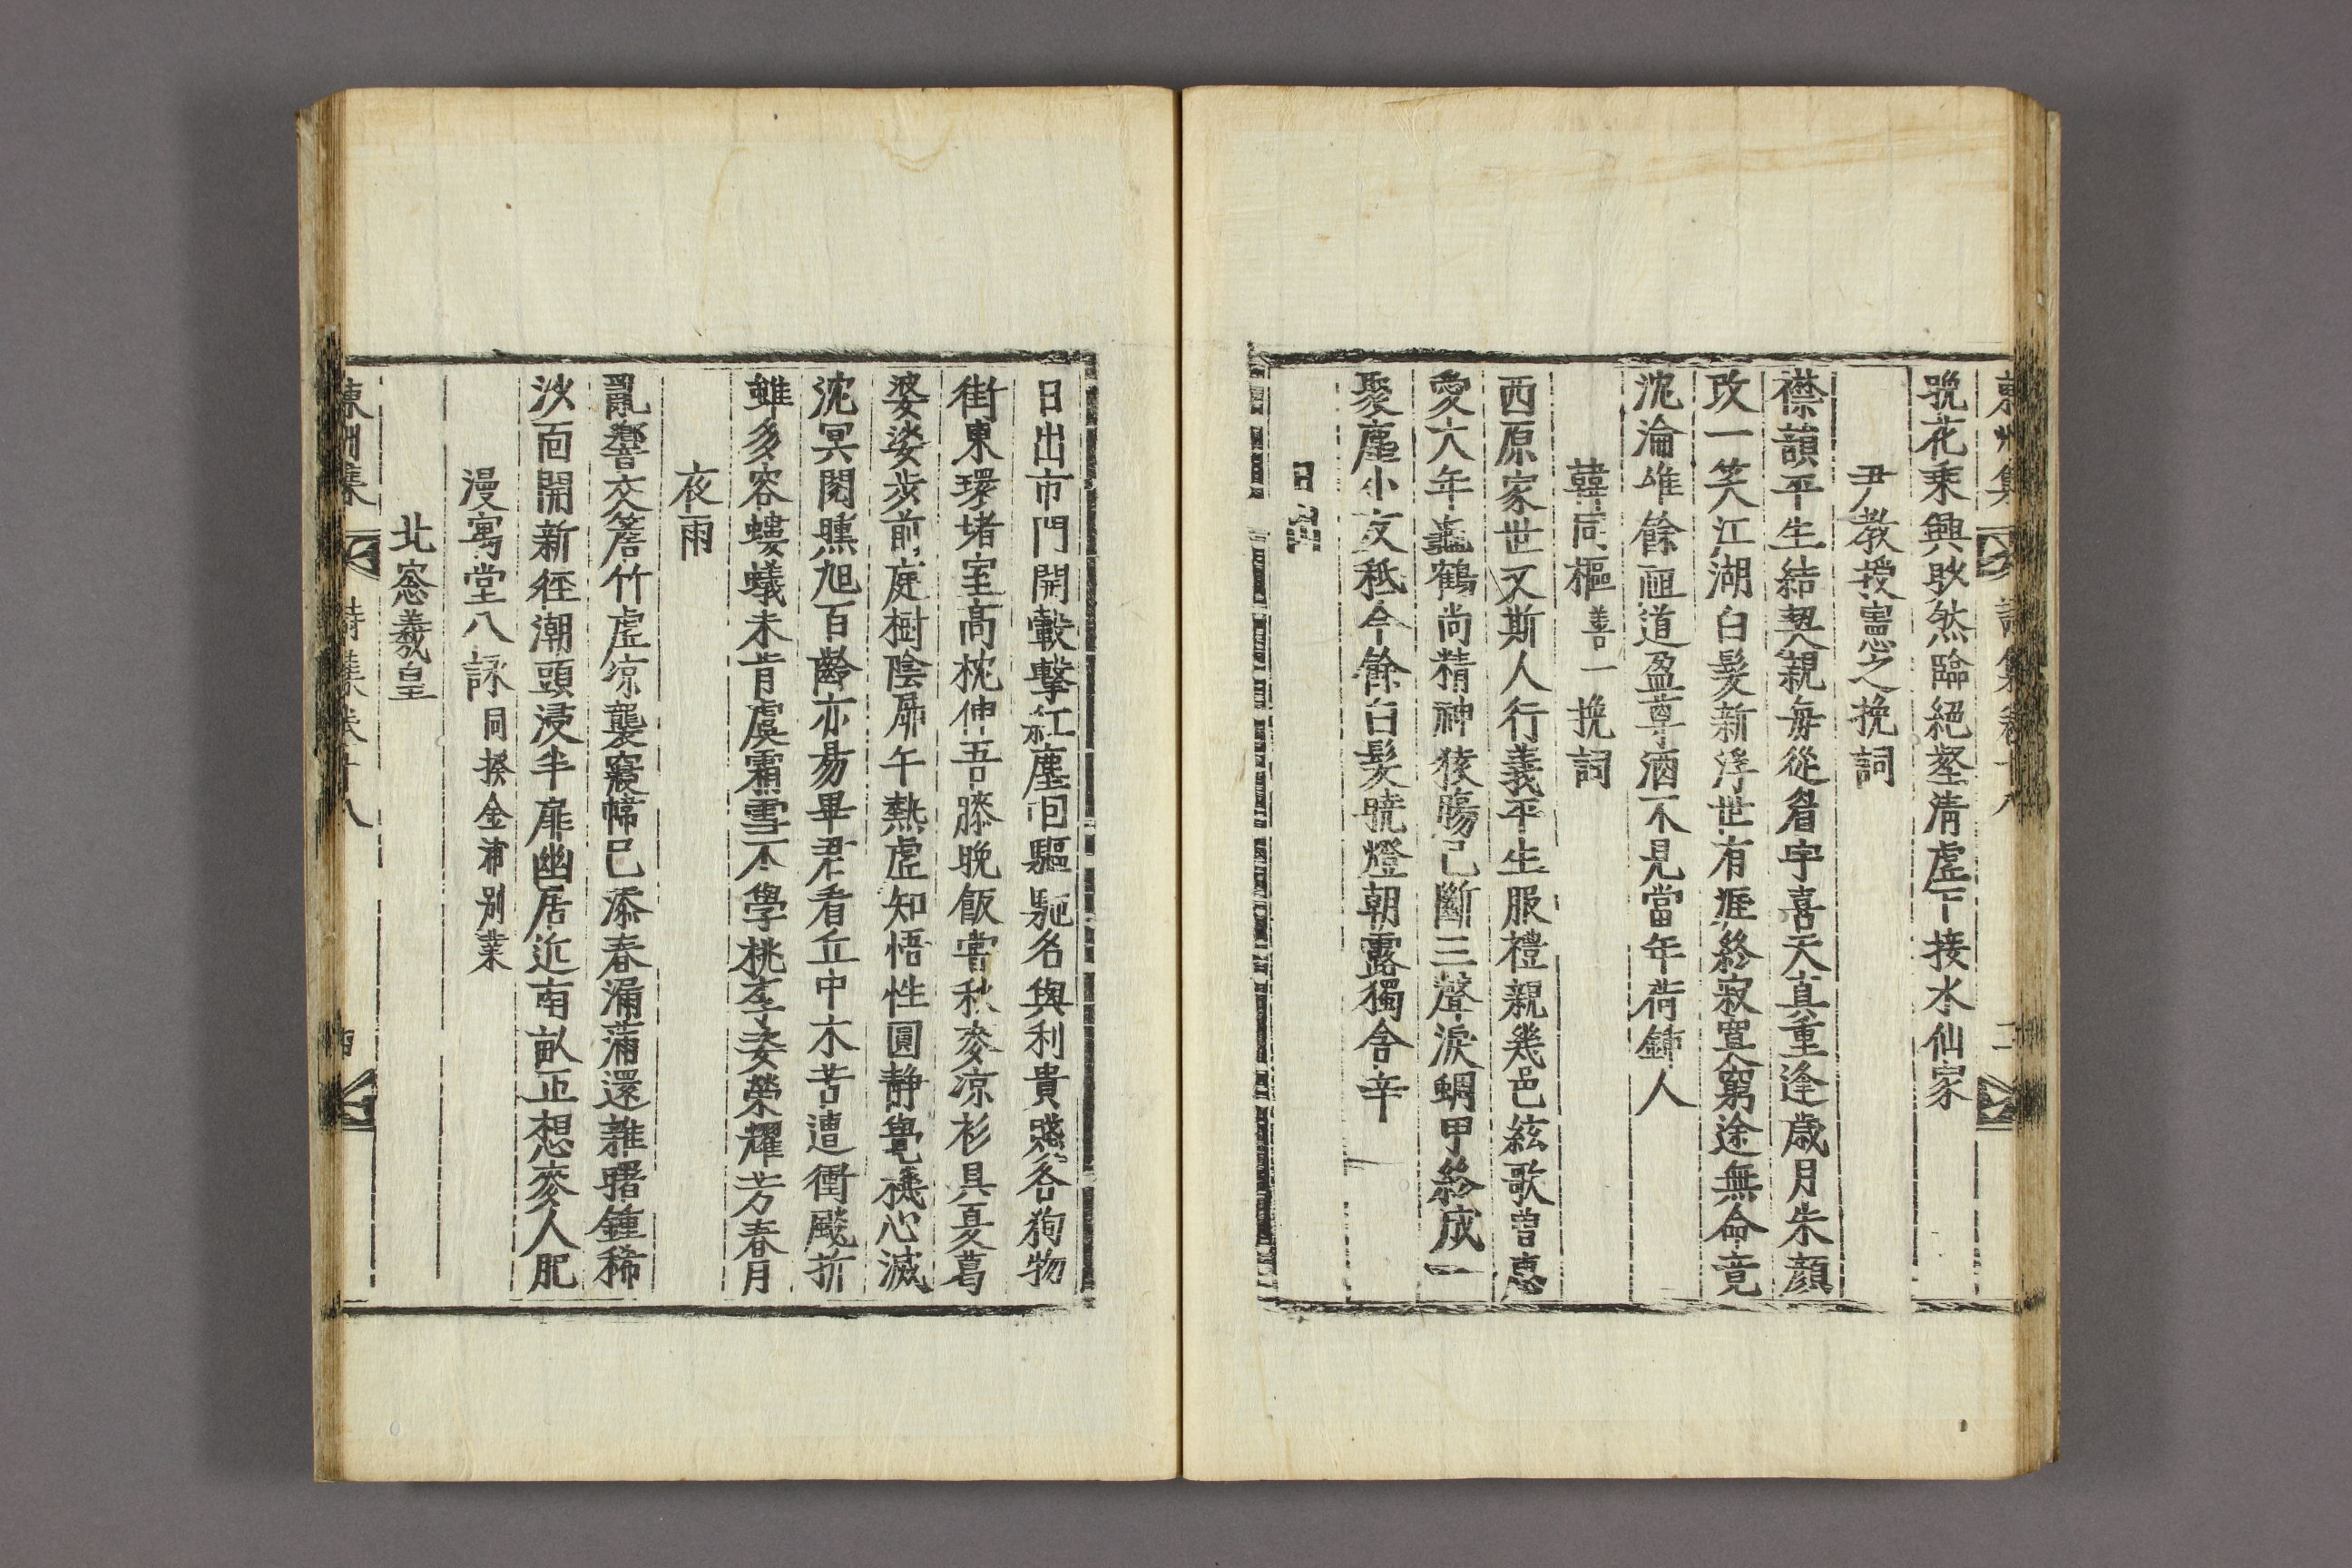 東州集 詩集卷十八 三
晩花乘興耿然臨絕壑淸虛下接水仙家
尹敎授憲之挽詞
襟韻平生結契親每從眉宇喜天真重逢歲月朱顔
改一笑江湖白髮新浮世有涯終寂寞窮途無命竟
沈淪唯餘祖道盈尊酒不見當年荷鍤人
韓同樞善一挽詞
西原家世又斯人行義平生服禮親幾邑絃歌曾惠
愛大年龜鶴尚精神猿膓已斷三聲淚蜩甲終成一
聚塵小友秪今餘白髮曉燈朝露獨含辛
日出
日出市門開轂擊紅塵回驅馳名與利貴賤各狥物
街東環堵室高枕伸吾膝晩飯嘗秋麥凉杉具夏葛
婆娑步前庭樹陰屛午熱虛知悟性圓靜覺機心滅
沈冥閱曛旭百齡亦易畢君看丘中木苦遭衝飈折
雖多容螻蟻未肯虞霜雪不學桃李姿榮耀芳春月
夜雨
亂響交簷竹虛凉襲寢幃已添春漏滿還雜曙鍾稀
沙面開新徑潮頭浸半扉幽居近南畝正想麥人肥
漫寓堂八詠同揆金浦別業
北窓羲皇
東州集 詩集卷十八